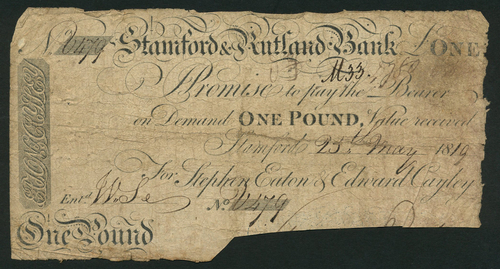 Stamford & Rutland Bank £ ONE
M33
I Promise to pay the Bearer
on Demand ONE POUND, Value received
Stamford 25th May 1819
For Stephen Eaton & Edward Cayley
Entd No 6479
One Pound